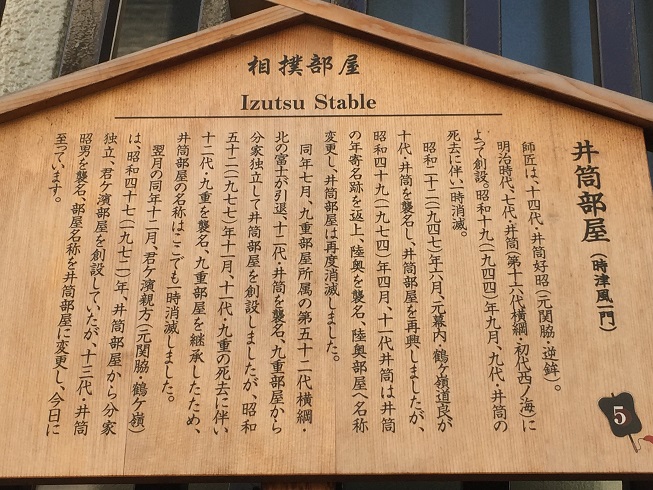 相撲部屋
Izutsu Stable
井筒部屋(時津風一門)
師匠は、十四代・井筒好昭(元関脇・逆鉾)。
明治時代、七代・井筒(第十六代横綱・初代西ノ海)に
よって創設。昭和十九(一九四四)年九月、九代・井筒の
死去に伴い一時消滅。
昭和二十二(一九四七)年六月、元幕内・鶴ヶ嶺道良が
十代・井筒を襲名し、井筒部屋を再興しましたが、
昭和四十九(一九七四)年四月、十一代井筒は井筒
の年寄名跡を返上、陸奥を襲名、陸奥部屋へ名称
変更し、井筒部屋は再度消滅しました。
同年七月、九重部屋所属の第五十二代横綱・
北の富士が引退、十二代・井筒を襲名、九重部屋から
分家独立して井筒部屋を創設しましたが、昭和
五十二(一九七七)年十一月、十一代・九重の死去に伴い
十二代・九重を襲名、九重部屋を継承したため、
井筒部屋の名称は、ここでも一時消滅しました。
翌月の同年十二月、君ケ濱親方(元関脇・鶴ケ嶺)
は、昭和四十七(一九七二)年、井筒部屋から分家
独立、君ケ濱部屋を創設していたが、十三代・井筒
昭男を襲名、部屋名称を井筒部屋に変更し、今日に
至っています。
5